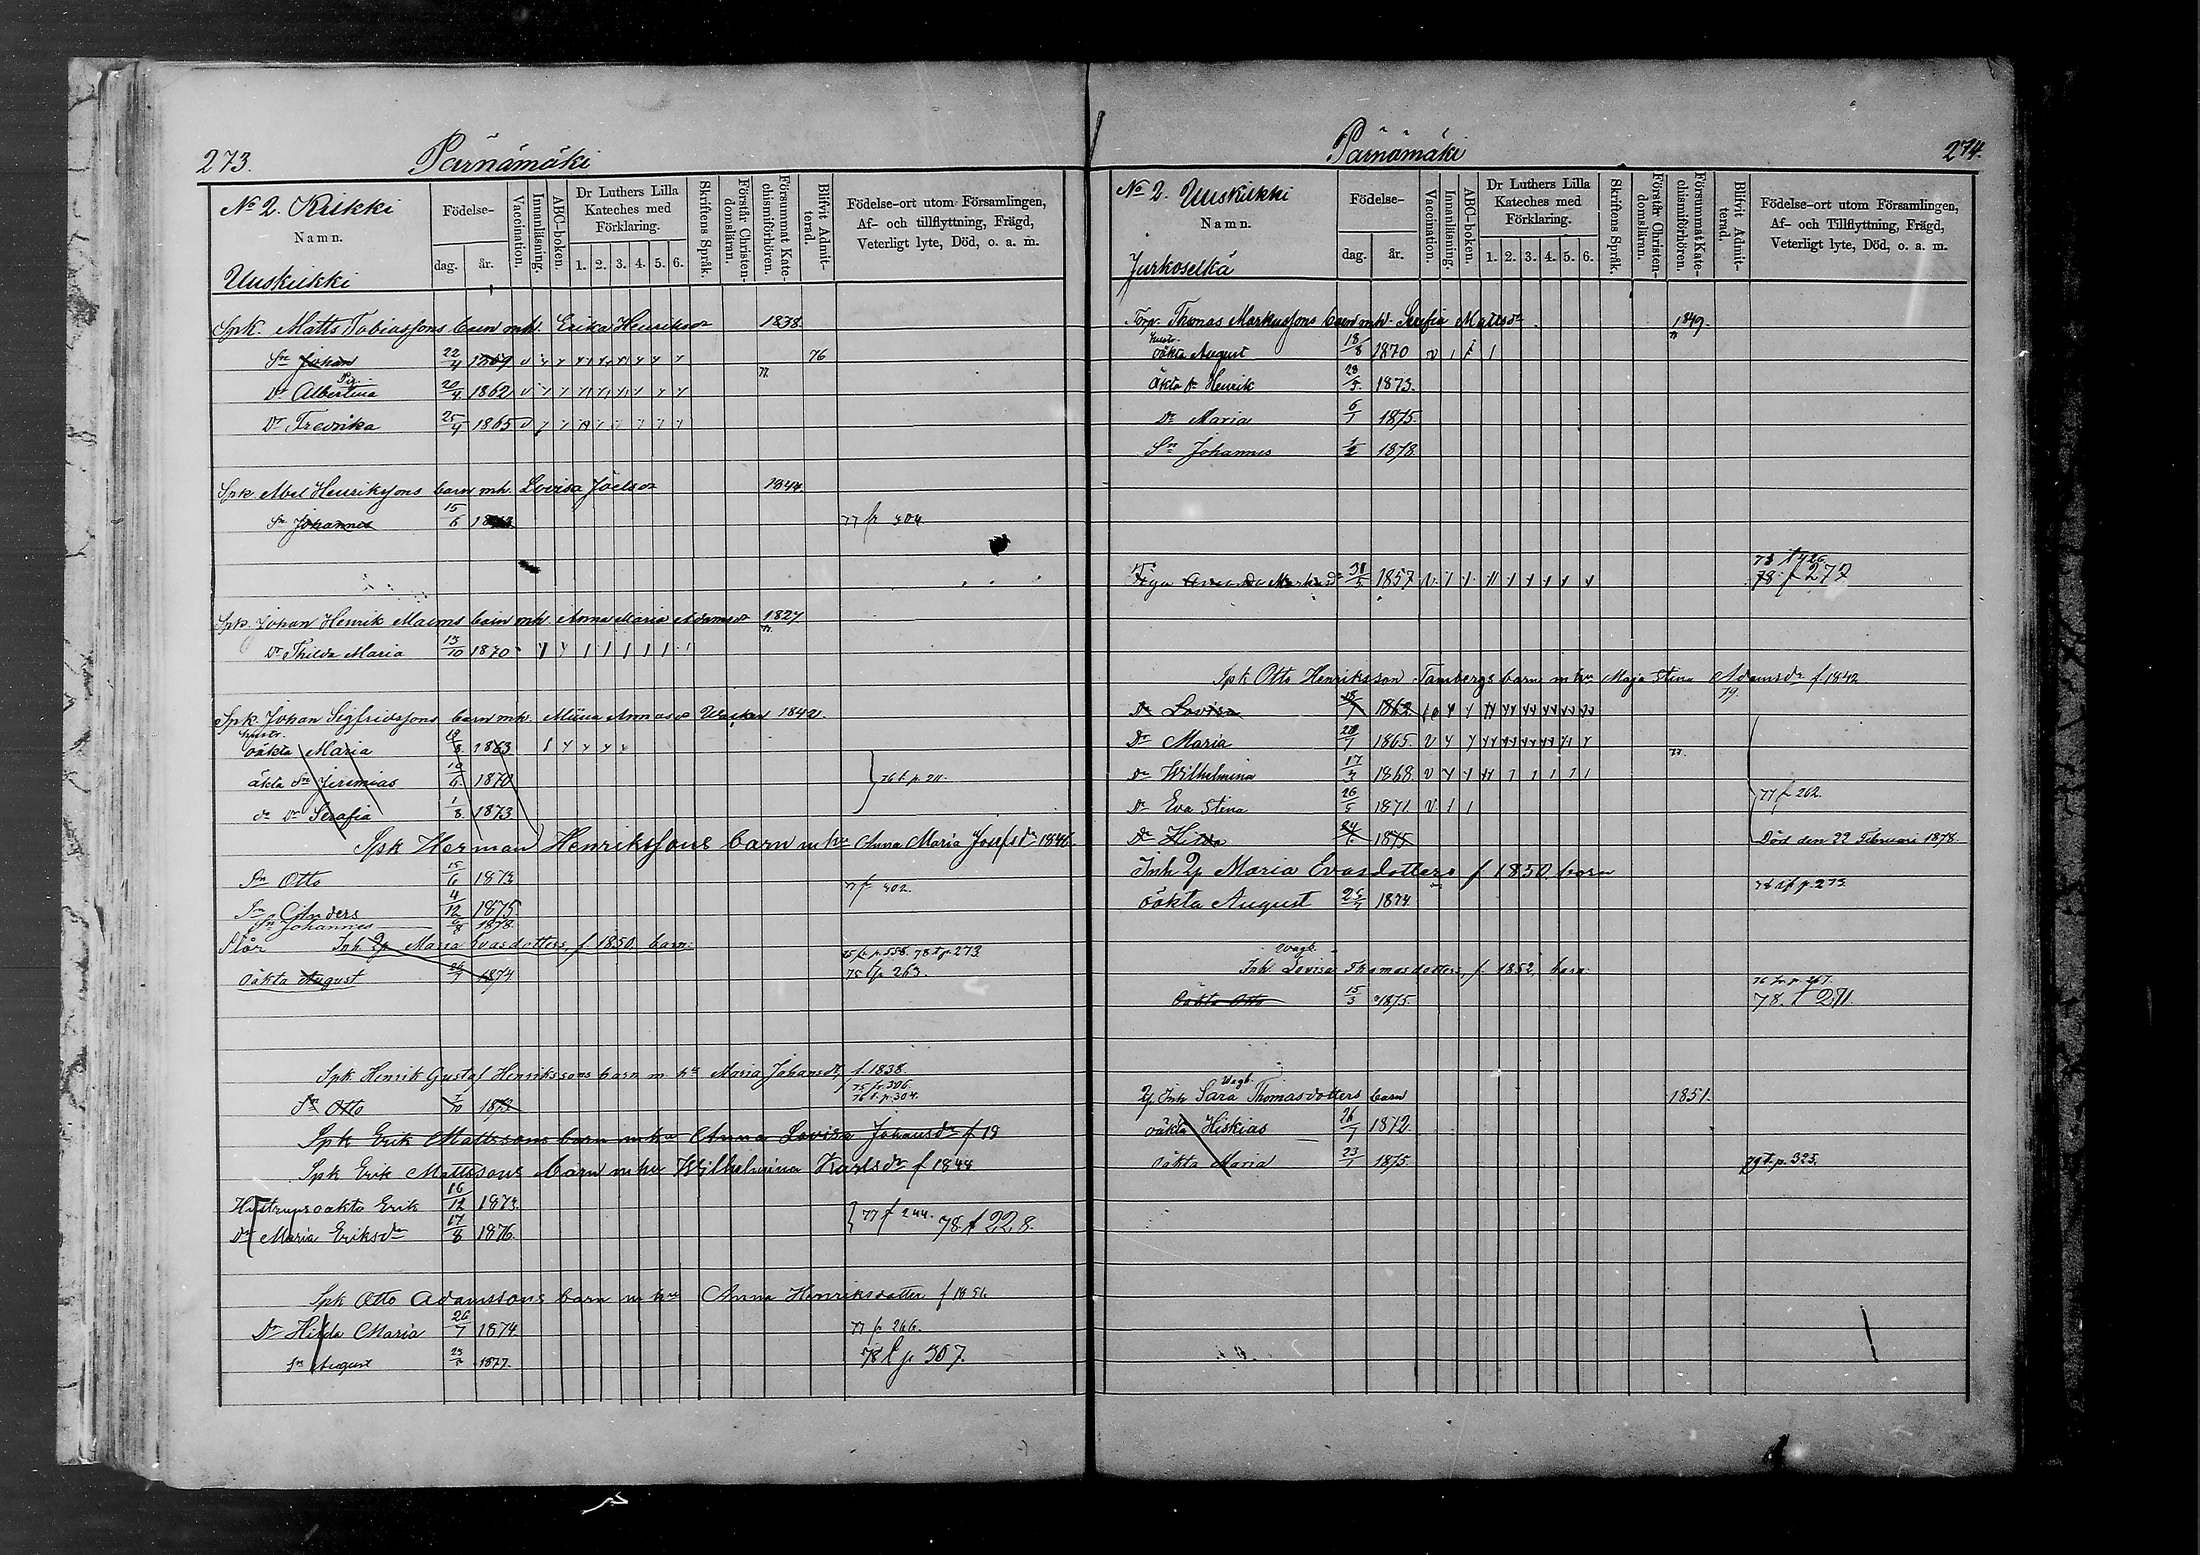 273. Pärnämäki
No 2. Kukki
Namn.
Uuskukki
Födelse-
dag. år.
Vaccination.
Innanläsning.
ABC-boken.
Dr Luthers Lilla Kateches med Förklaring.
1. 2. 3. 4. 5. 6.
Skriftens Språk.
Förstår Christendomsläran.
Försummat Katechismiförhören.
Blifvit Admitterad.
Födelse-ort utom Församlingen,
Af- och tillflyttning, Frägd,
Veterligt lyte, Död, o. a. m.
Spk. Matts Tobiassons barn mh. Erika Henriksdr 1838.
Sn Johan 22/4 1859 76
Dr Albertina 20/4 1862
Dr Fredrika 25/4 1865
Spk Abel Henrikssons barn mh. Lovisa Joelsdr 1844.
Sn Johannes 15/6 77 p 304
Spk. Johan Henrik Malms barn mh Anna Maria Adamsdr 1827
Dr Thilda Maria 13/10 1870
Spk. Johan Sigfridssons barn mh. Miina Annasdr 1842.
hustr. oäkta Maria 1863
äkta Sn Jeremias 1870 76 t. p. 211.
do Dr Serafia 1/8 1873
Spk Herman Henrikssons barn m hu Anna Maria Josefsdr 1846
Sn Otto 15/6 1873 77 p 302.
Sn Anders 4/12 1875
Sn Johannes 1878
Står Inh 2p Maria Evasdotters f. 1850 barn: 78 t p. 273
Oäkta August 1874 75 t p 263.
Spk Henrik Gustaf Henrikssons barn m. hu Maria Johansdr f. 1838
75 fr. 306.
Sn Otto 1872 76 t. p. 304.
Spk Erik Mattssons barn m hu Anna Lovisa Johansdr f 18
Spk Erik Mattssons barn m hu Wilhelmina Karlsdr f 1848
Hustrus oäkta Erik 16/12 1873.
Dr Maria Eriksdr 17/8 1876. 77 f 244. 78 t 228.
Spk Otto Adamssons barn m hu Anna Henriksdotter f 1856
Dr Hilda Maria 26/7 1874 77 fr 266.
Sn August 1877. 78 t p 307.
Pärnämäki 274.
No 2. Uuskukki
Namn.
Jurkoselkä
Födelse-
dag. år.
Vaccination.
Innanläsning.
ABC-boken.
Dr Luthers Lilla Kateches med Förklaring.
1. 2. 3. 4. 5. 6.
Skriftens Språk.
Förstår Christendomsläran.
Försummat Katechismiförhören.
Blifvit Admitterad.
Födelse-ort utom Församlingen,
Af- och Tillflyttning, Frägd,
Veterligt lyte, Död, o. a. m.
Torp. Thomas Markussons barn mh. Serafia Mattsdr 1849.
hustr. oäkta August 18/8 1870
äkta Sn Henrik 1873.
Dr Maria 6/1 1875.
Sn Johannes 1/2 1878.
73 t 426
Piga Amanda Markusdr 31/5 1857 78 f 277
Spk Otto Henriksson Tambergs barn m hu Maja Stina Adamsdr f. 1842
Dr Lovisa 1862 79.
Dr Maria 1865. 77.
Dr Wilhelmina 1868
Dr Eva Stina 1871. 77 f 262.
Dr Hilda 1875 Död den 22 Februari 1878.
Inh 2p Maria Evasdotters f 1850. barn
Oäkta August 1874. 78 t p. 273
Wagb.
Inh. Lovisa Thomasdotters, f. 1852, barn:
Oäkta Otto 15/3 1875. 78. t 271.
Wagb.
2p Inh Sara Thomasdotters barn 1851.
oäkta Hiskias 26/7 1872
oäkta Maria 23/1 1875. 79 t. p. 325.